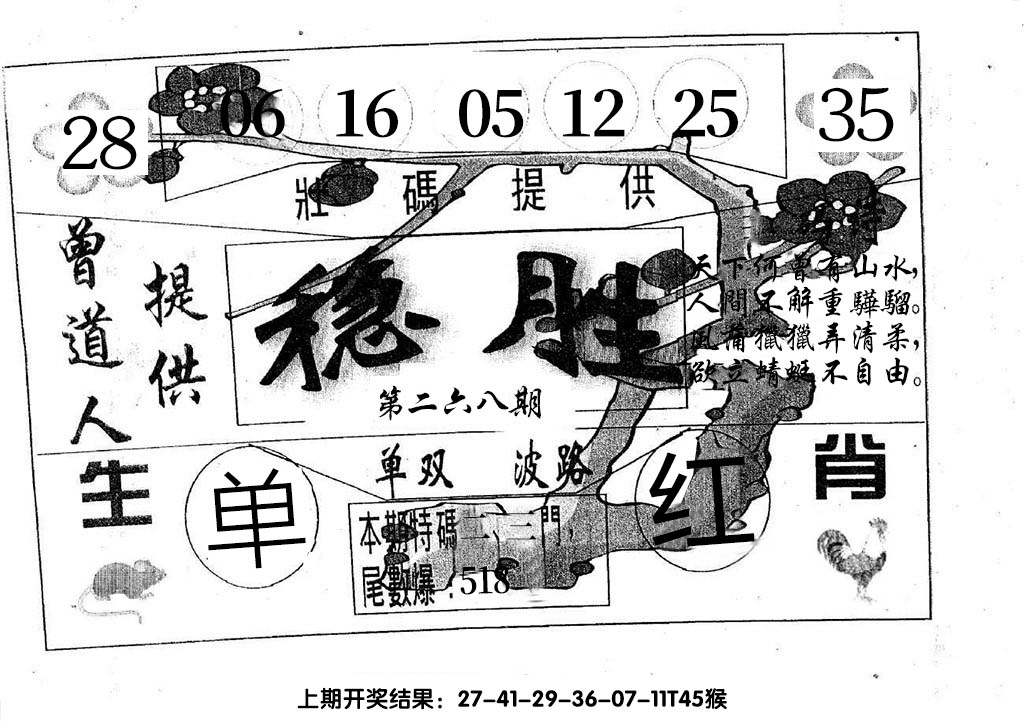 28 06 16 05 12 25 35
壯碼提供
曾道人
提供
稳胜
第二六八期
詩
天下何曾有山水，
人間不解重驊騮。
風蒲獵獵弄清柔，
欲立蜻蜓不自由。
单双 波路
生肖
单
红
本期特碼二、三門，
尾數爆：518
上期开奖结果：27-41-29-36-07-11T45猴